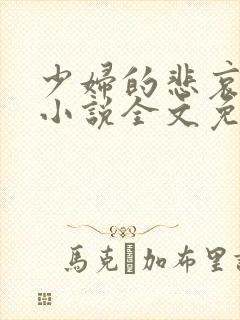 少婦的悲哀
小說全文免
馬克·加布里